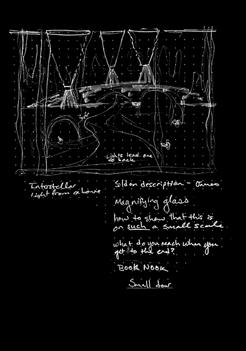 lights lead one
to back
Interstellar
light from above
description - 
Magnifying glass
how to show that this is
on such a small scale.
what do you reach when you
get to the end?
BOOK NOOK
Small door